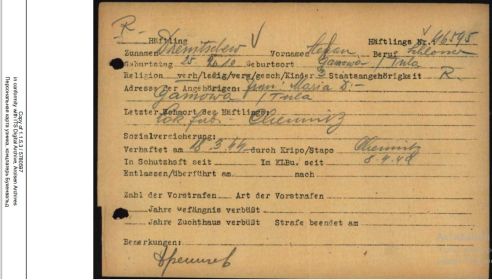 R.
Häftling Häftlings Nr. 46595
Zuname Vorname Stefan Beruf Schlosser
Geburtstag 25 Geburtsort Gamowa / Tula
Religion verh/ledig/verw/gesch/Kinder Staatsangehörigkeit R.
Adresse der Angehörigen: frau: Maria D.-
Gamowa / Tula
Letzter Wohnort des Häftlings:
Chemnitz
Sozialversicherung:
Verhaftet am 18.3.44 durch Kripo/Stapo Chemnitz
In Schutzhaft seit In KLBu. seit 8.4.44
Entlassen/überführt am nach
Zahl der Vorstrafen Art der Vorstrafen
Jahre Gefängnis verbüßt
Jahre Zuchthaus verbüßt Strafe beendet am
Bemerkungen:
Copy of 1.1.5.3 / 5780597
in conformity with ITS Digital Archive, Arolsen Archives
Персональная карта узника, концлагерь Бухенвальд